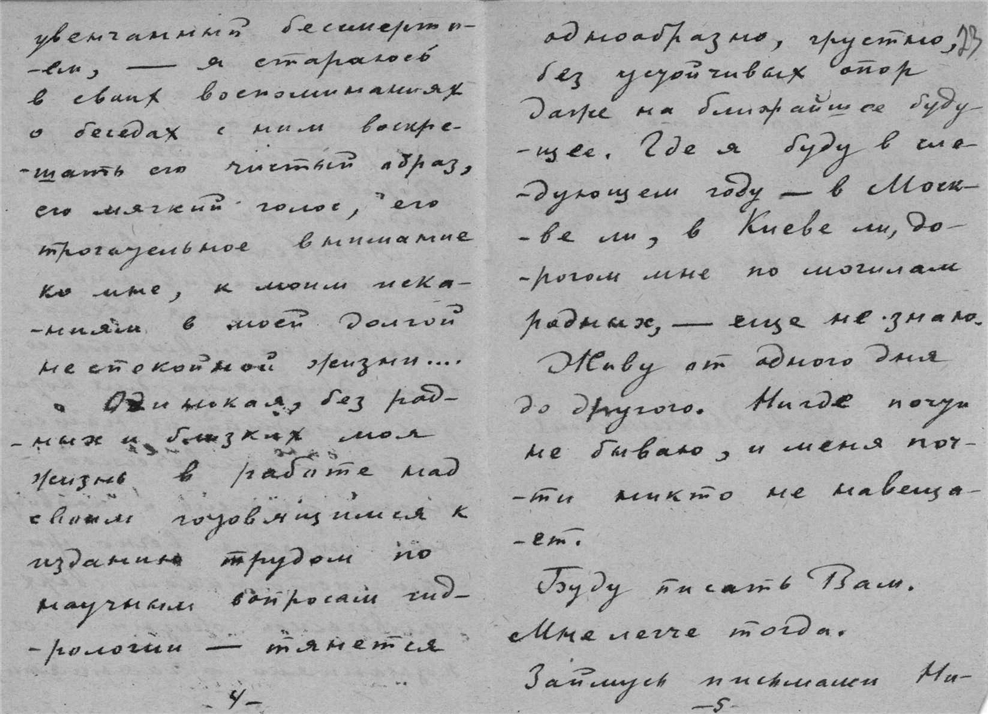 увенчанный бессмерти-
-ем, — я стараюсь
в своих воспоминаниях
о беседах с ним воскре-
-шать его чистый образ,
его мягкий голос, его
трогательное внимание
ко мне, к моим иска-
-ниям в моей долгой
неспокойной жизни....
Одинокая, без род-
-ных и близких моя
жизнь в работе над
своим готовящимся к
изданию трудом по
научным вопросам гид-
-рологии — тянется
-4-
однообразно, грустно,
23
без устойчивых опор
даже на ближайшее буду-
-щее. Где я буду в сле-
-дующем году — в Моск-
-ве ли, в Киеве ли, до-
-рогом мне по могилам
родных, — еще не знаю.
Живу от одного дня
до другого. Нигде почти
не бываю, и меня поч-
-ти никто не навеща-
-ет.
Буду писать Вам.
Мне легче тогда.
Займусь письмами Ни-
-5-